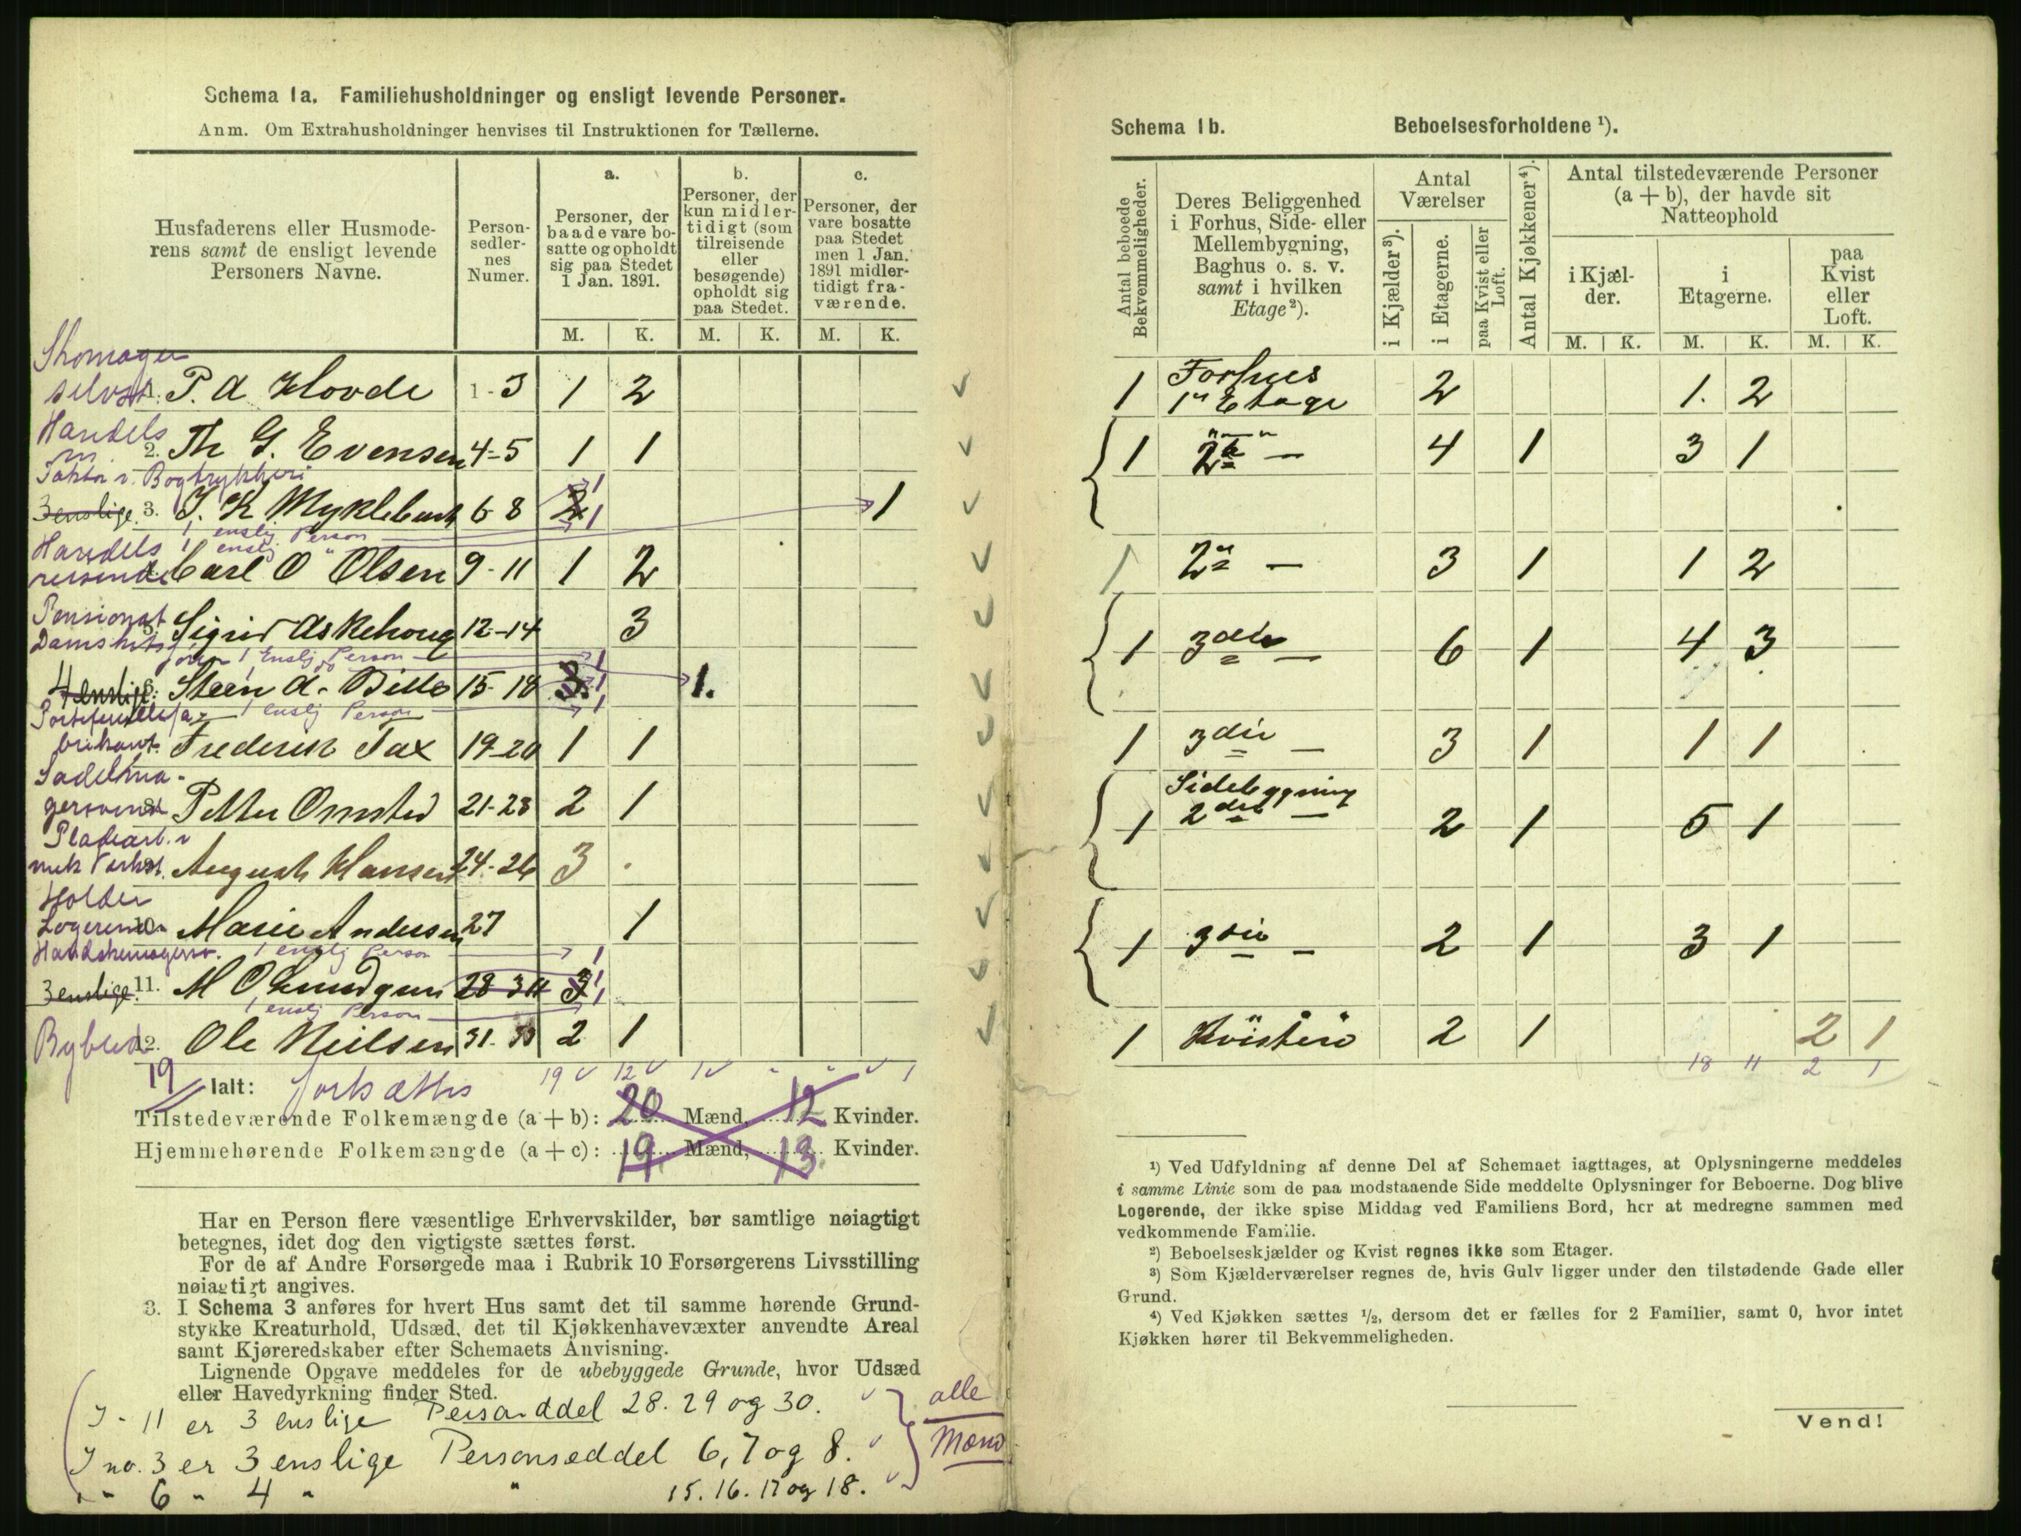 Schema 1a. Familiehusholdninger og ensligt levende Personer.
Anm. Om Extrahusholdninger henvises til Instruktionen for Tællerne.
Husfaderens eller Husmode-
rens samt de ensligt levende
Personers Navne.
Person-
sedler-
nes
Numer.
a.
Personer, der
baade vare bo-
satte og opholdt
sig paa Stedet
1 Jan. 1891.
b.
Personer, der
kun midler-
tidigt (som
tilreisende
eller
besøgende)
opholdt sig
paa Stedet.
c.
Personer, der
vare bosatte
paa Stedet
men 1 Jan.
1891 midler-
tidigt fra-
værende.
M. K. M. K. M. K.
Skomager
selvst. 1. P. A Hovde 1-3 1 2
Handels
m. 2. Th G. Evensen 4-5 1 1
Faktor v. Bogtrykkeri 1
3 enslige 3. J. K Myklebust 6 8 2 1 1
1 enslig Person
1 enslig "
Handels
reisende Carl O Olsen 9-11 1 2
Pensionat
5. Sigrid Askehoug 12-14 3
1 Enslig Person 1
4 enslige 6. Steen A. Bille 15-18 3. 1 1.
1 enslig Person 1
Portefeuillefa-
brikant Frederik Fax 19-20 1 1
Sadelma-
gersvend 8. Petter Omsted 21-23 2 1
Pladearb. v
mek Verkst. August Hansen 24-26 3 .
Holder
Logerende 10. Marie Andersen 27 1
Handskemagersv. 1 enslig Person 1
3 enslige 11. M O Lundgren 28 30 3 1
1 enslig Person 1
12. Ole Neilsen 31-33 2 1
19 Ialt: fortsættes 19 ✓ 12 ✓ 1 ✓ " " ✓ 1
Tilstedeværende Folkemængde (a + b): 20 Mænd, 12 Kvinder.
Hjemmehørende Folkemængde (a + c): 19. Mænd, 13. Kvinder.
Har en Person flere væsentlige Erhvervskilder, bør samtlige nøiagtigt
betegnes, idet dog den vigtigste sættes først.
For de af Andre Forsørgede maa i Rubrik 10 Forsørgerens Livsstilling
nøiagtigt angives.
3. I Schema 3 anføres for hvert Hus samt det til samme hørende Grund-
stykke Kreaturhold, Udsæd, det til Kjøkkenhavevæxter anvendte Areal
samt Kjøreredskaber efter Schemaets Anvisning.
Lignende Opgave meddeles for de ubebyggede Grunde, hvor Udsæd
eller Havedyrkning finder Sted.
I - 11 er 3 enslige Personddel 28. 29 og 30. ✓
I no. 3 er 3 enslige Personseddel 6, 7 og 8. ✓
" - 6 " 4 " " 15. 16. 17 og 18. ✓
alle
Mænd
Schema 1b. Beboelsesforholdene ¹).
Antal beboede
Bekvemmeligheder.
Deres Beliggenhed
i Forhus, Side- eller
Mellembygning,
Baghus o. s. v.
samt i hvilken
Etage²).
Antal
Værelser
i Kjælder³).
i Etagerne.
paa Kvist eller
Loft.
Antal Kjøkkener⁴).
Antal tilstedeværende Personer
(a + b), der havde sit
Natteophold
i Kjæl-
der.
i
Etagerne.
paa
Kvist
eller
Loft.
M. K. M. K. M. K.
1 Forhus
1ste Etage 2 1. 2
1 2de — 4 1 3 1
1 2de — 3 1 1 2
1 3die — 6 1 4 3
1 3die — 3 1 1 1
Sidebygning
1 2den — 2 1 5 1
1 3die — 2 1 3 1
1 2 1 2 1
18 11 2 1
¹) Ved Udfyldning af denne Del af Schemaet iagttages, at Oplysningerne meddeles
i samme Linie som de paa modstaaende Side meddelte Oplysninger for Beboerne. Dog blive
Logerende, der ikke spise Middag ved Familiens Bord, her at medregne sammen med
vedkommende Familie.
²) Beboelseskjælder og Kvist regnes ikke som Etager.
³) Som Kjælderværelser regnes de, hvis Gulv ligger under den tilstødende Gade eller
Grund.
⁴) Ved Kjøkken sættes ½, dersom det er fælles for 2 Familier, samt 0, hvor intet
Kjøkken hører til Bekvemmeligheden.
Vend!